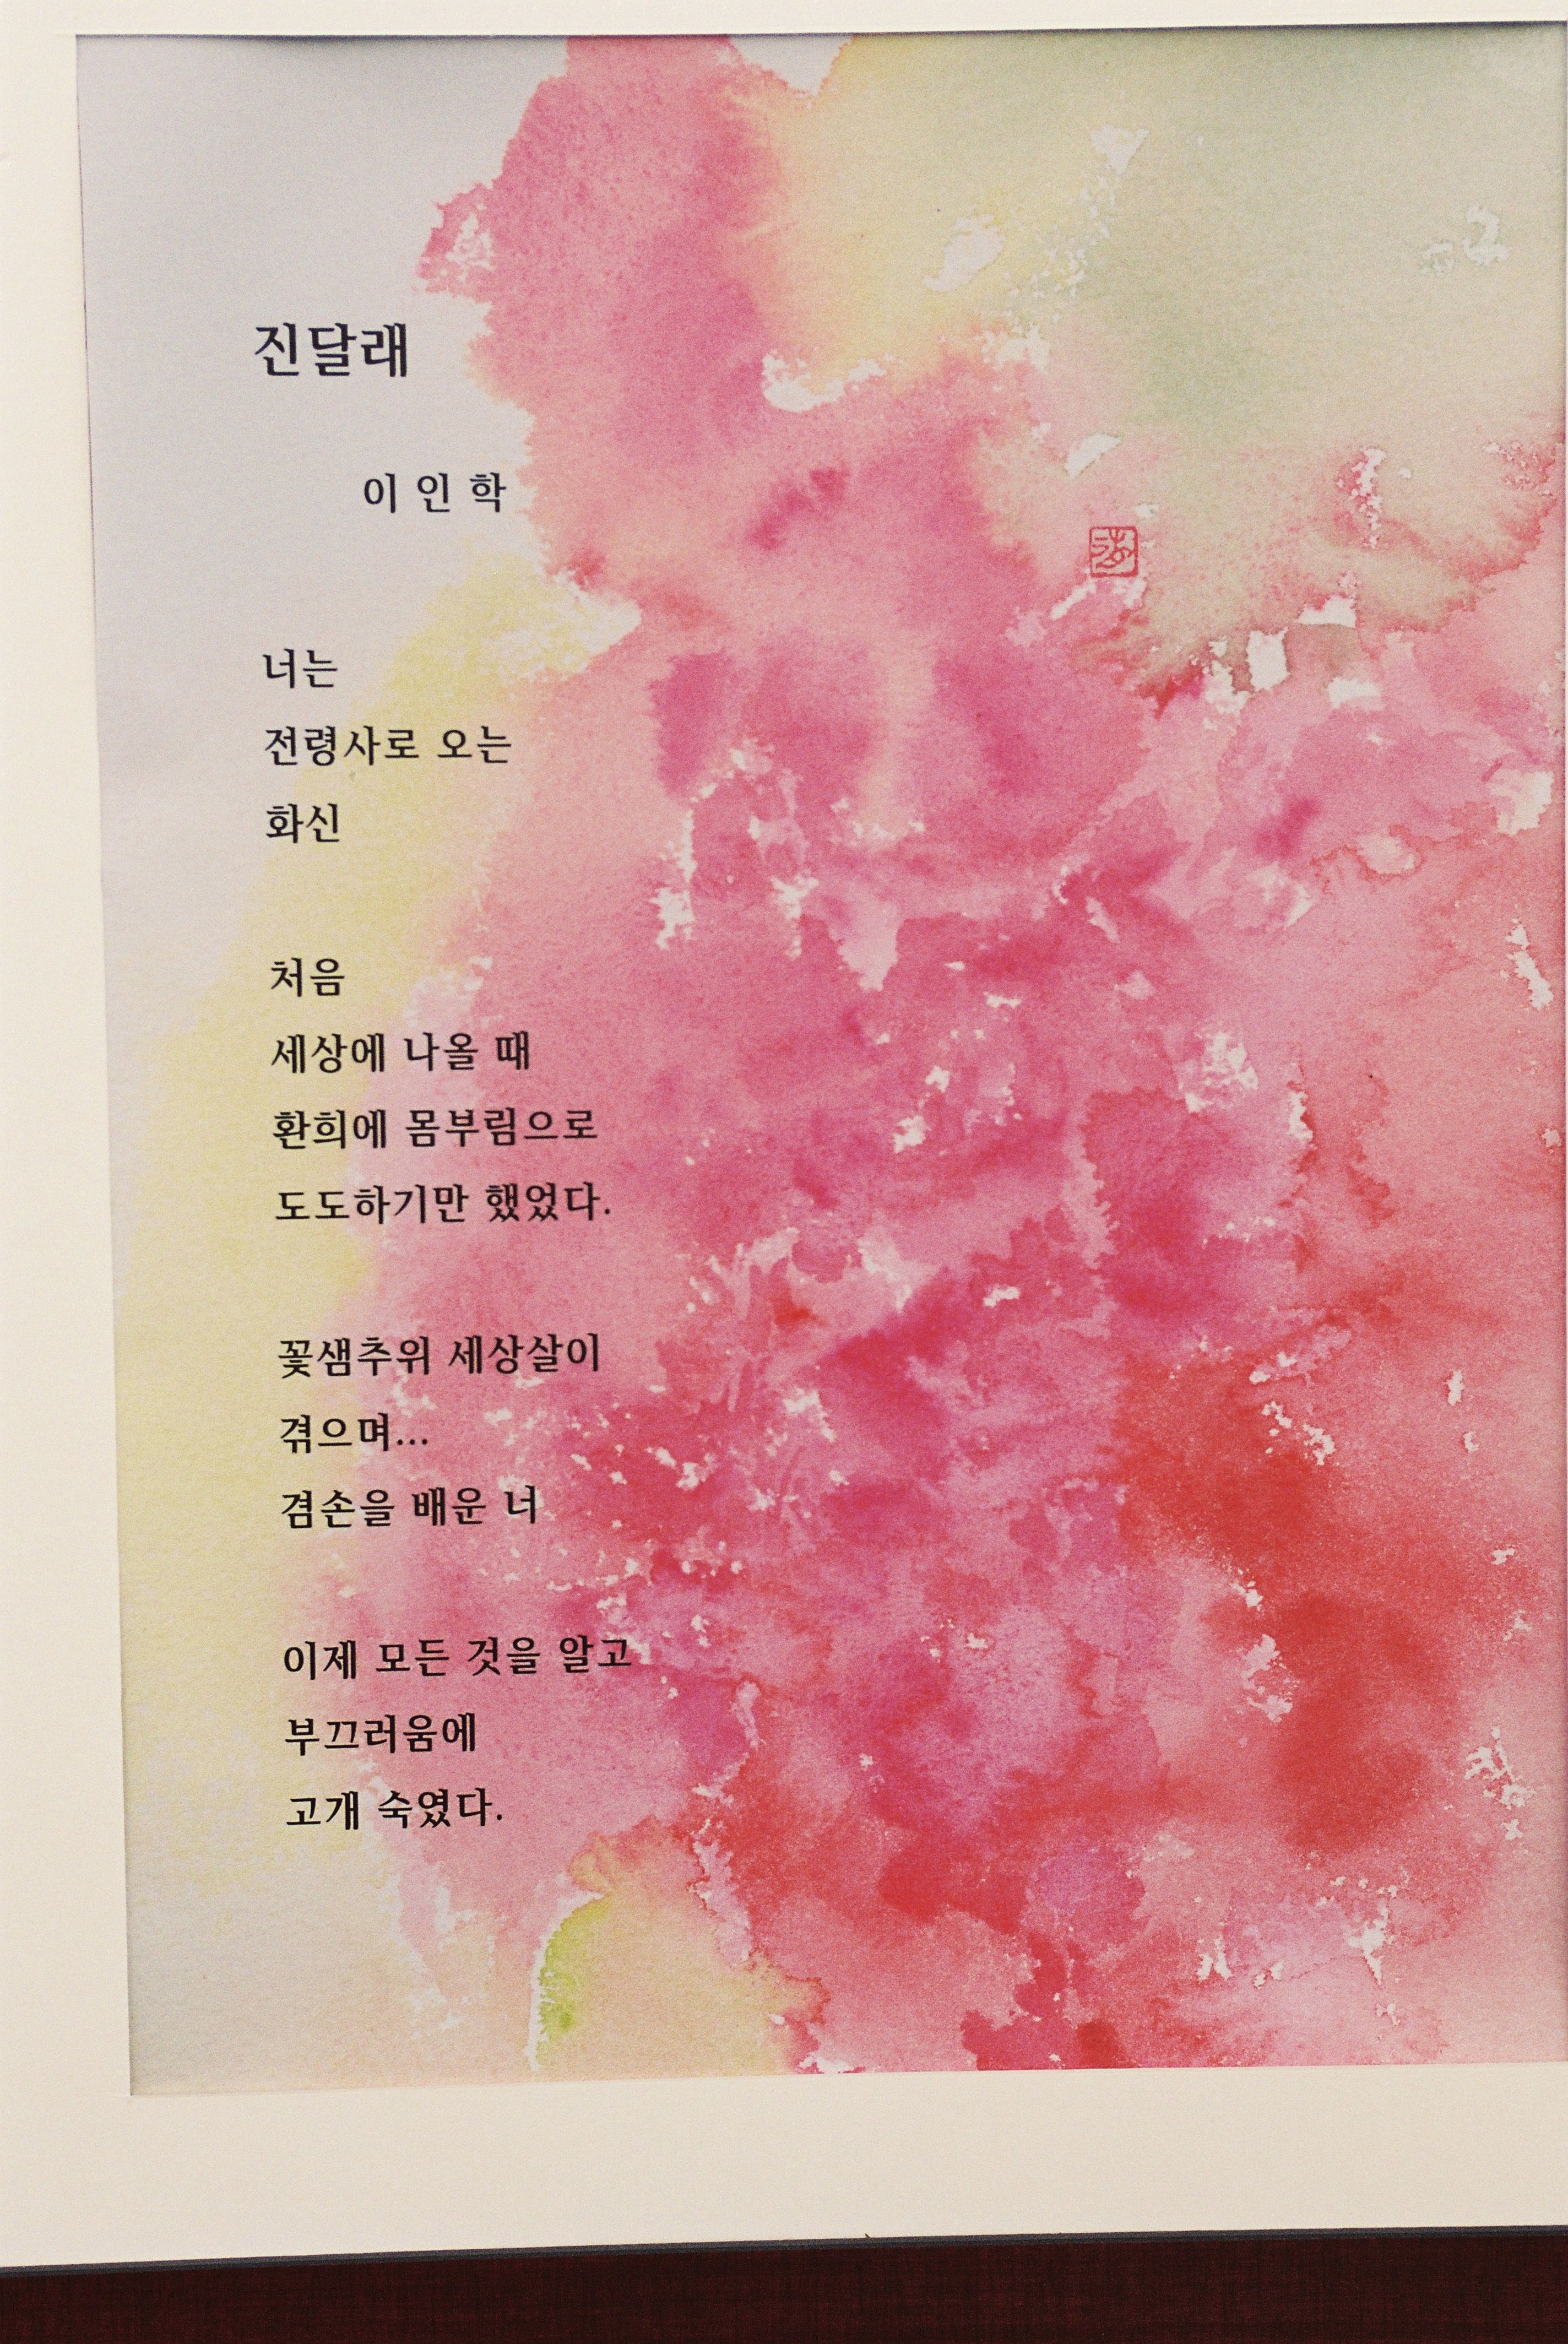 진달래
이 인 학
너는
전령사로 오는
화신
처음
세상에 나올 때
환희에 몸부림으로
도도하기만 했었다.
꽃샘추위 세상살이
겪으며...
겸손을 배운 너
이제 모든 것을 알고
부끄러움에
고개 숙였다.